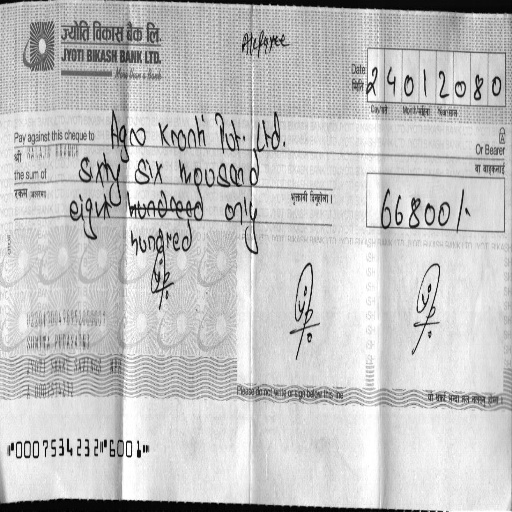 ज्योति विकास बैंक लि.
JYOTI BIKASH BANK LTD.
A/c Payee
Date
मिति
24012080
Day/गते Month/महिना Year/साल
Pay against this cheque to Agro Kranti Pvt. Ltd.
Or Bearer
श्री
वा वाहकलाई
the sum of sixty six thousand
रकम अक्षरमा
eight hundreed only
hundred
भुक्तानी दिनुहोला ।
66800/-
Please do not write or sign below this line
⑈0007534232⑈6001⑈